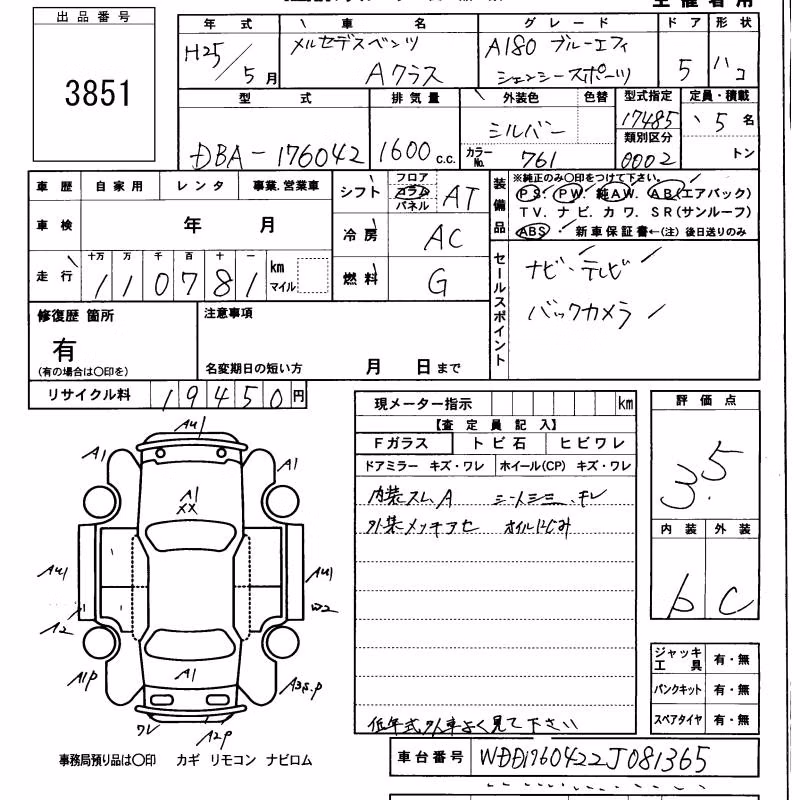 主催者用
出品番号
3851
年式 車名 グレード ドア 形状
H25/5月 メルセデスベンツ Aクラス A180 ブルーエフィシェンシースポーツ 5 ハコ
型式 排気量 外装色 色替 型式指定 定員・積載
DBA-176042 1600c.c. シルバー 17485 5名
カラーNo. 761 類別区分 0002 トン
車歴 自家用 レンタ 事業.営業車
車検 年 月
走行 十万 万 千 百 十 一
110781 km マイル
シフト フロア コラム パネル AT
冷房 AC
燃料 G
装備品
※純正のみ〇印をつけて下さい。
PS. PW. 純AW. AB(エアバック)
TV. ナビ. カワ. SR(サンルーフ)
ABS・新車保証書←(注) 後日送りのみ
セールスポイント
ナビ・テレビ
バックカメラ
修復歴 箇所
有
(有の場合は〇印を)
注意事項
名変期日の短い方 月 日まで
リサイクル料 19450円
現メーター指示 km
【査定員記入】
Fガラス トビ石 ヒビワレ
ドアミラー キズ・ワレ ホイール(CP) キズ・ワレ
内装スレ、A シートシミ キレ
外装メッキアセ オイルにじみ
低年式外車よく見て下さい
評価点
3.5
内装 外装
b C
ジャッキ工具 有・無
パンクキット 有・無
スペアタイヤ 有・無
車台番号 WDD1760422J081365
AU1
A1 A1
A1
XX
AU1 AU1
W2
A2
A1P A1 A3S.P
ワレ A2P
事務局預り品は〇印 カギ リモコン ナビロム